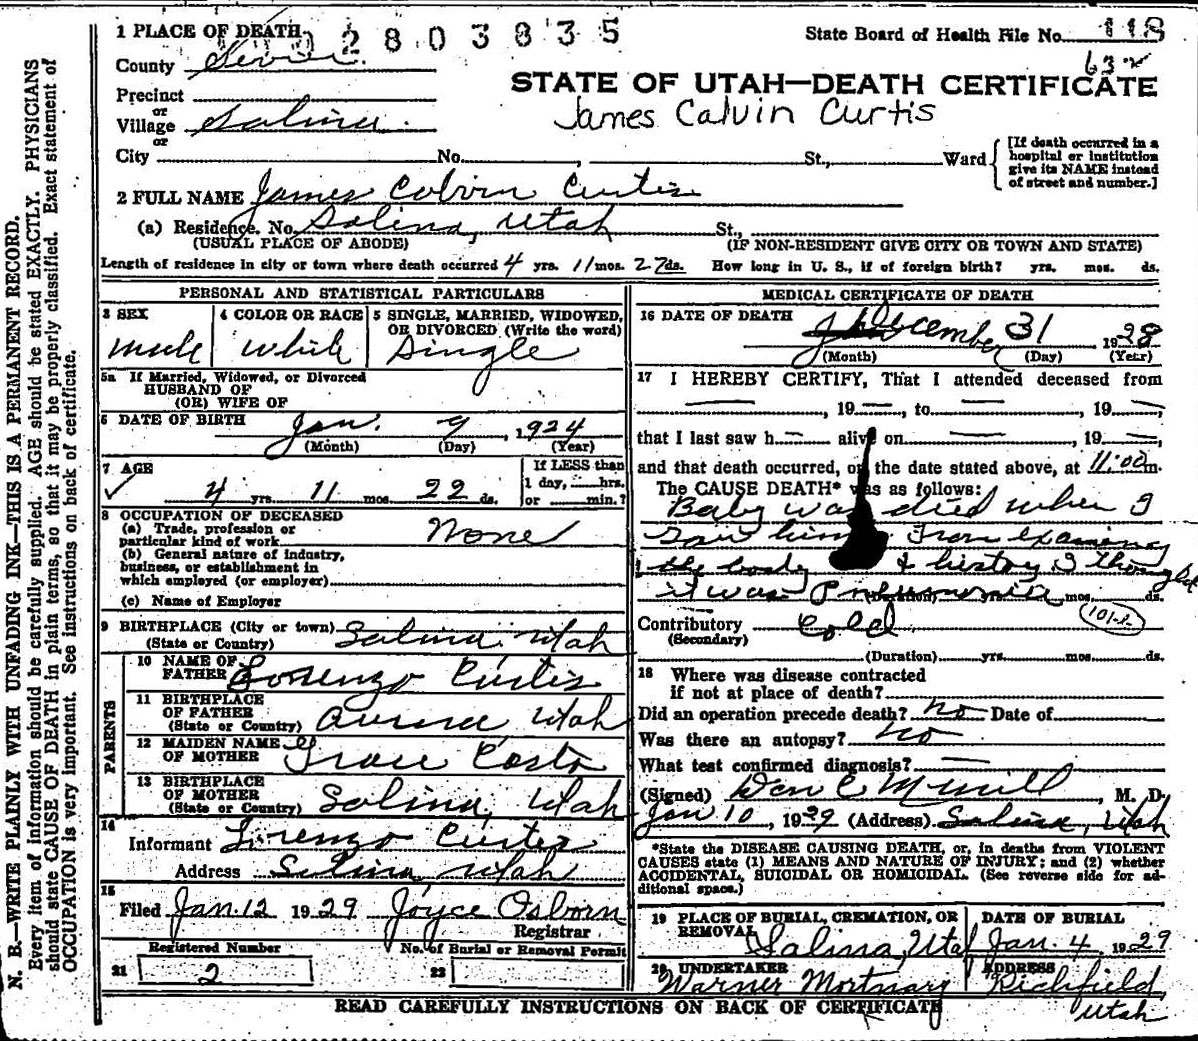 1 PLACE OF DEATH 2803835 State Board of Health File No. 118
County Sevier
632
STATE OF UTAH—DEATH CERTIFICATE
Precinct
or
Village Salina
or
James Calvin Curtis
City No. , St., Ward
[If death occurred in a hospital or institution give its NAME instead of street and number.]
2 FULL NAME James Colvin Curtis
(a) Residence. No. Salina, Utah St.,
(USUAL PLACE OF ABODE) (IF NON-RESIDENT GIVE CITY OR TOWN AND STATE)
Length of residence in city or town where death occurred 4 yrs. 11 mos. 27 ds. How long in U. S., if of foreign birth? yrs. mos. ds.
PERSONAL AND STATISTICAL PARTICULARS
3 SEX 4 COLOR OR RACE 5 SINGLE, MARRIED, WIDOWED, OR DIVORCED (Write the word)
male white Single
5a If Married, Widowed, or Divorced
HUSBAND OF
(OR) WIFE OF
6 DATE OF BIRTH Jan. 9, 1924
(Month) (Day) (Year)
7 AGE If LESS than
✓ 4 yrs. 11 mos. 22 ds. 1 day, hrs.
or min.?
8 OCCUPATION OF DECEASED
(a) Trade, profession or
particular kind of work None
(b) General nature of industry,
business, or establishment in
which employed (or employer)
(c) Name of Employer
9 BIRTHPLACE (City or town) Salina, Utah
(State or Country)
PARENTS
10 NAME OF
FATHER Lorenzo Curtis
11 BIRTHPLACE
OF FATHER
(State or Country) Utah
12 MAIDEN NAME
OF MOTHER Grace
13 BIRTHPLACE
OF MOTHER
(State or Country) Salina, Utah
14
Informant Lorenzo Curtis
Address Salina, Utah
15
Filed Jan. 12 1929 Joyce Osborn
Registrar
Registered Number No. of Burial or Removal Permit
21 2 22
MEDICAL CERTIFICATE OF DEATH
16 DATE OF DEATH December 31 1928
(Month) (Day) (Year)
17 I HEREBY CERTIFY, That I attended deceased from
— , 19 — , to — , 19 — ,
that I last saw h — alive on — , 19 — ,
and that death occurred, on the date stated above, at 11:00 m.
The CAUSE DEATH* was as follows:
Baby was died when I
saw him. From examining
the body & history I thought
it was Pneumonia mos. ds.
Contributory Cold 101-2
(Secondary)
(Duration) yrs. mos. ds.
18 Where was disease contracted
if not at place of death?
Did an operation precede death? no Date of
Was there an autopsy? no
What test confirmed diagnosis? —
(Signed) Don C Merrill, M. D.
Jan 10, 1929 (Address) Salina, Utah
*State the DISEASE CAUSING DEATH, or, in deaths from VIOLENT
CAUSES state (1) MEANS AND NATURE OF INJURY; and (2) whether
ACCIDENTAL, SUICIDAL OR HOMICIDAL. (See reverse side for ad-
ditional space.)
19 PLACE OF BURIAL, CREMATION, OR REMOVAL DATE OF BURIAL
Salina, Utah Jan. 4 1929
20 UNDERTAKER ADDRESS
Warner Mortuary Richfield,
Utah
READ CAREFULLY INSTRUCTIONS ON BACK OF CERTIFICATE
N. B.—WRITE PLAINLY WITH UNFADING INK—THIS IS A PERMANENT RECORD.
Every item of information should be carefully supplied. AGE should be stated EXACTLY. PHYSICIANS
should state CAUSE OF DEATH in plain terms, so that it may be properly classified. Exact statement of
OCCUPATION is very important. See instructions on back of certificate.